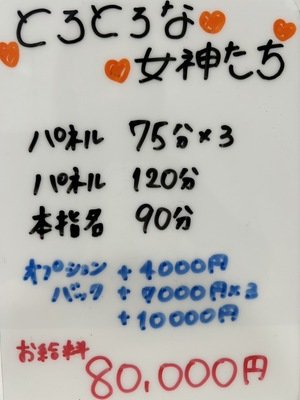 とろとろな
女神たち
パネル 75分×3
パネル 120分
本指名 90分
オプション +4000円
バック +7000円×3
+10000円
お給料
80,000円